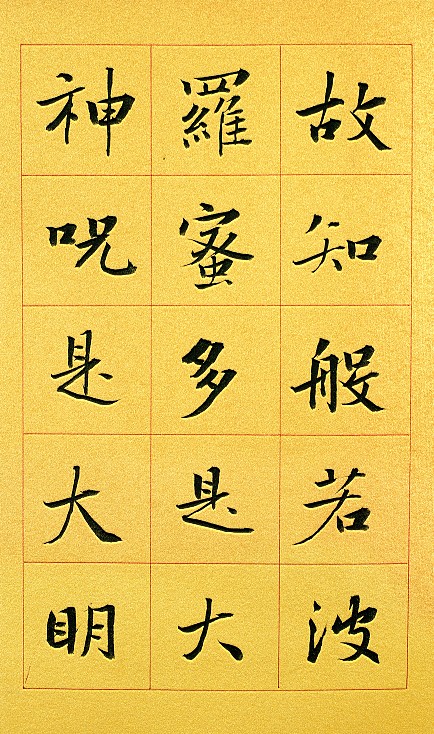 故知般若波
羅蜜多是大
神呪是大明